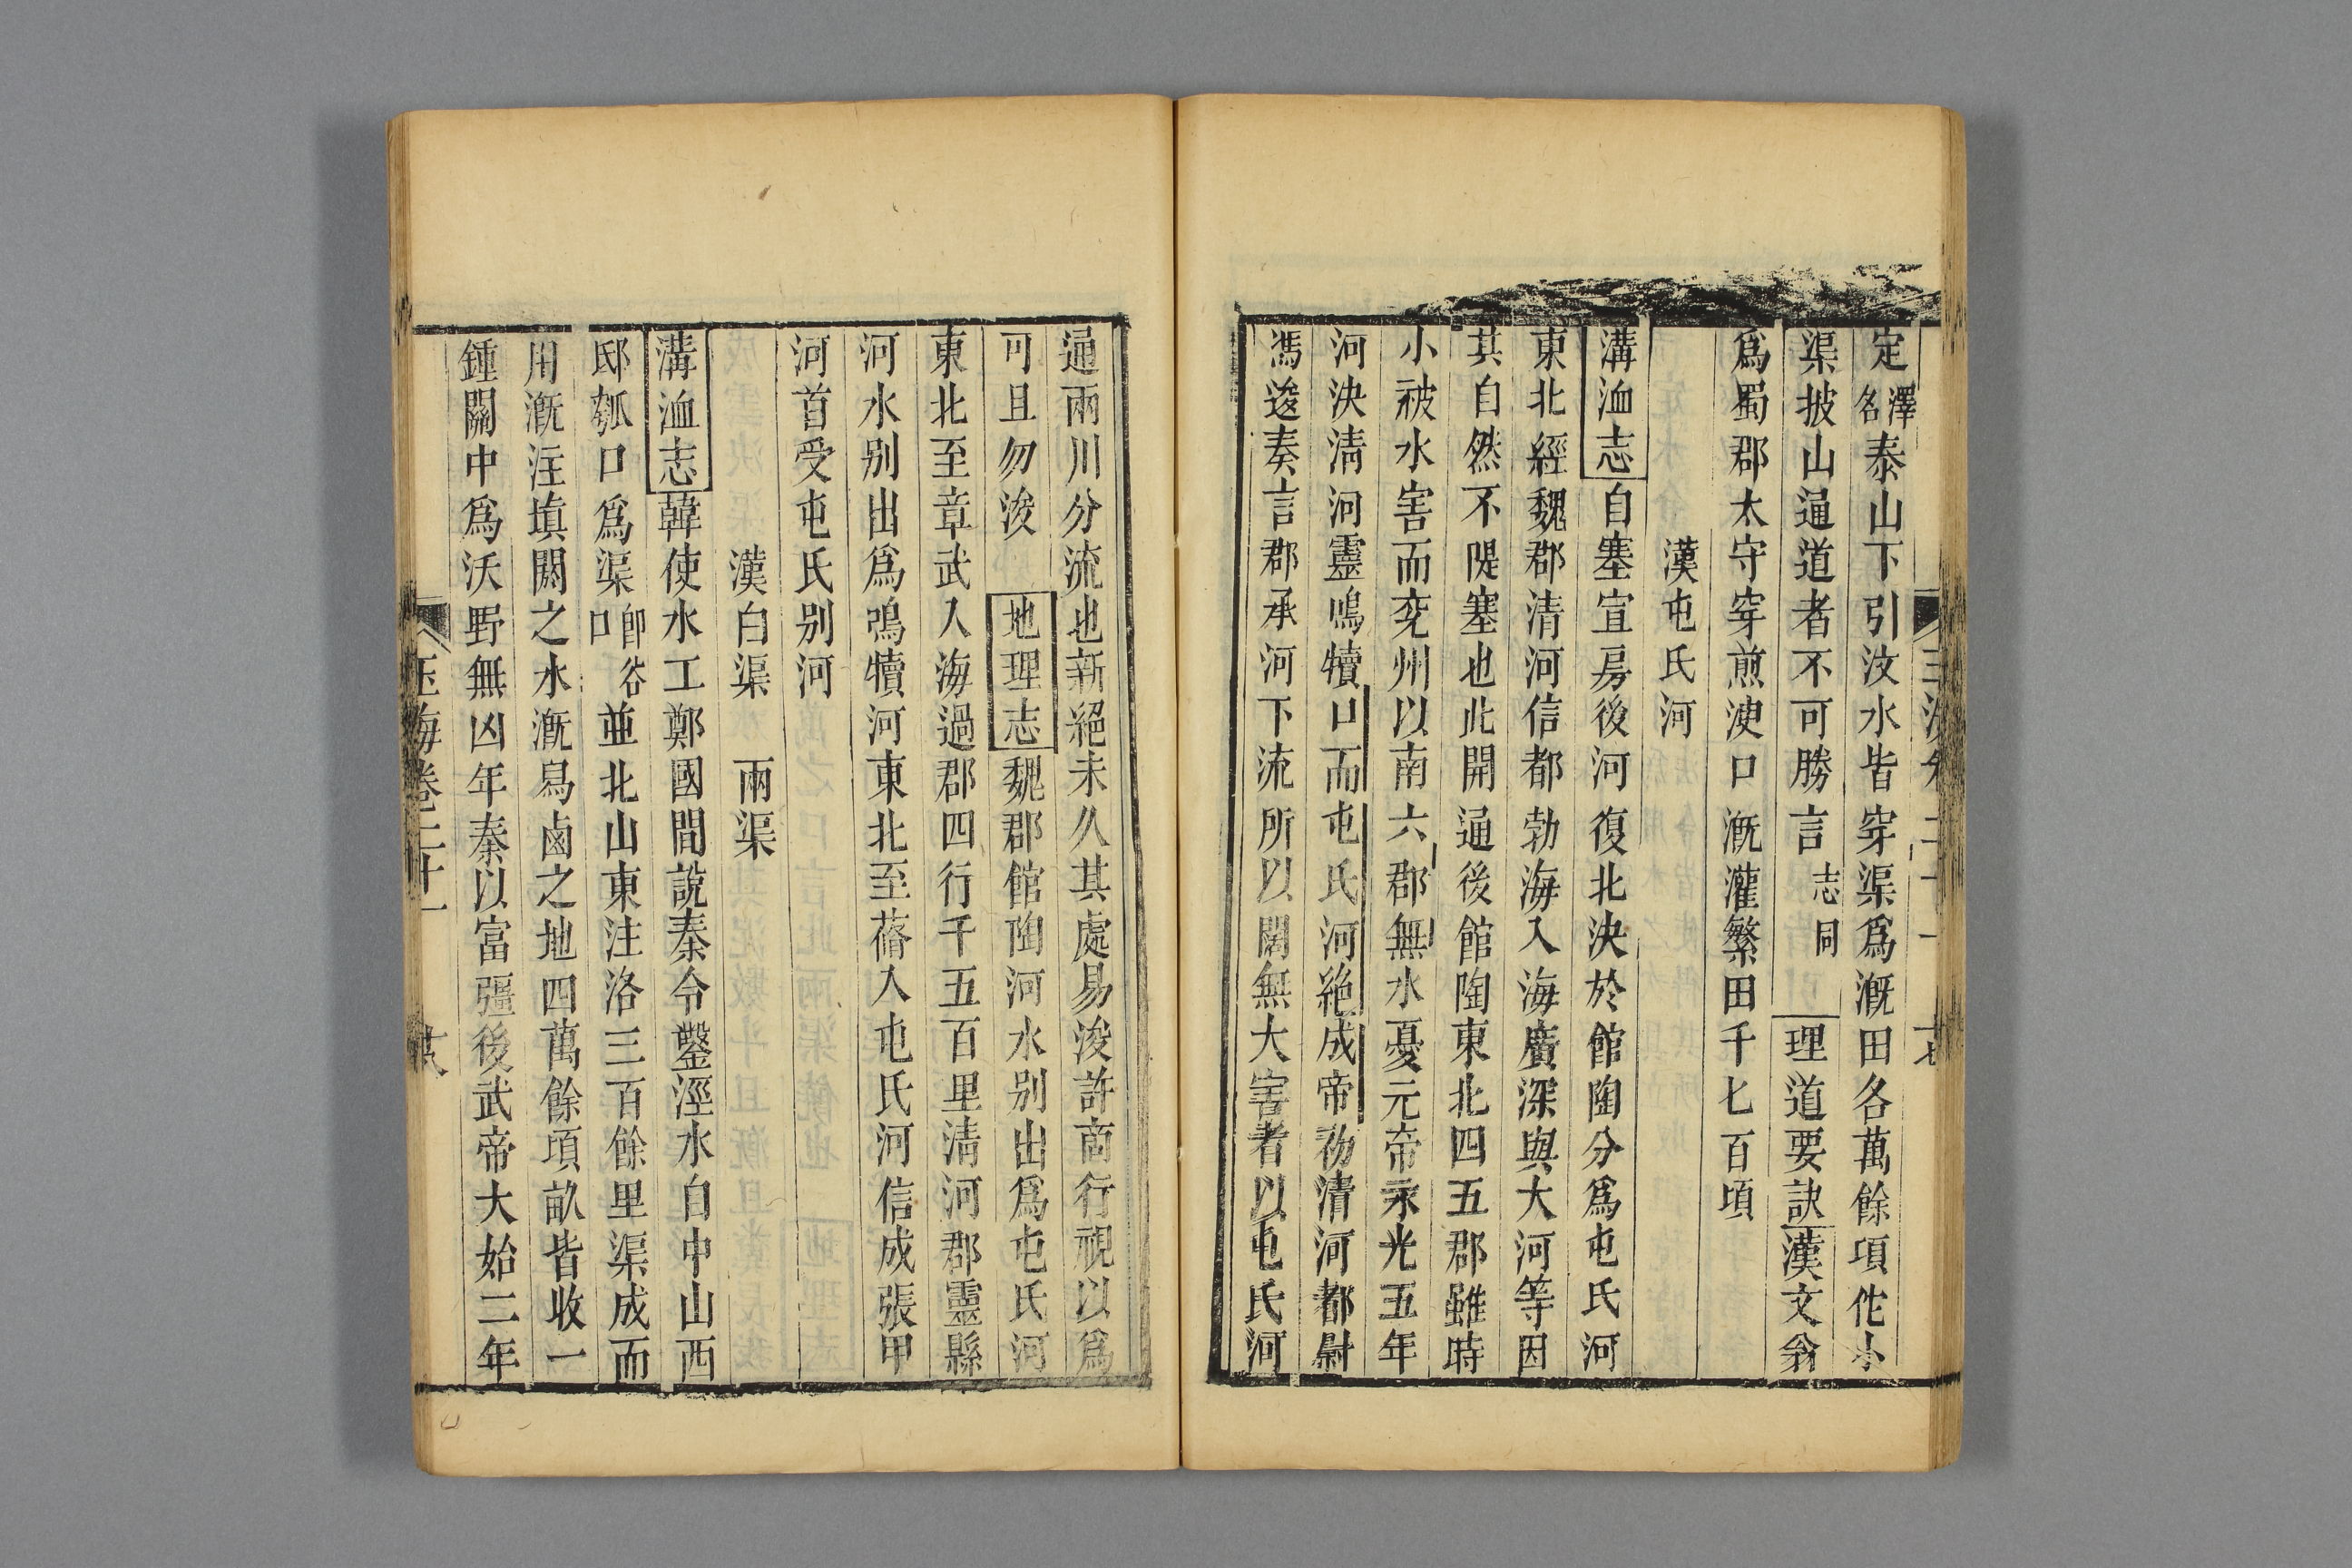 定澤名泰山下引汶水皆穿渠爲漑田各萬餘項佗小
渠披山通道者不可勝言志同理道要訣漢文翁
爲蜀郡太守穿煎㳛口漑灌繁田千七百頃
漢屯氏河
溝洫志自塞宣房後河復北決於館陶分爲屯氏河
東北經魏郡清河信都勃海入海廣深與大河等因
其自然不隄塞也此開通後館陶東北四五郡雖時
小被水害而兖州以南六郡無水憂元帝永光五年
河決清河靈鳴犢口而屯氏河絶成帝初清河都尉
馮逡奏言郡承河下流所以闊無大害者以屯氏河
通兩川分流也新絕未久其處易浚許商行視以爲
可且勿浚地理志魏郡館陶河水别出爲屯氏河
東北至章武入海過郡四行千五百里清河郡靈縣
河水别出爲鳴犢河東北至蓨入屯氏河信成張甲
河首受屯氏别河
漢白渠 兩渠
溝洫志韓使水工鄭國間說秦令鑿涇水自中山西
邸瓠口爲渠卽谷口並北山東注洛三百餘里渠成而
用漑注塡閼之水漑舄鹵之地四萬餘項畝皆收一
鍾關中爲沃野無凶年秦以富彊後武帝大始二年
玉海卷二十一 廿八